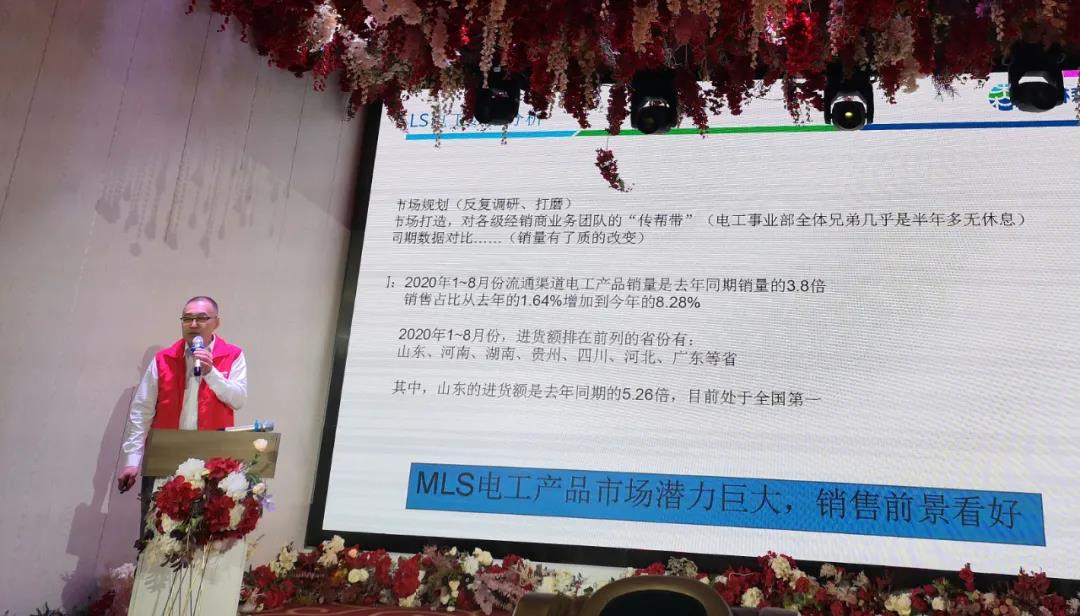 市场规划（反复调研、打磨）
市场打造，对各级经销商业务团队的“传帮带”（电工事业部全体兄弟几乎是半年多无休息）
司期数据对比……（销量有了质的改变）
：2020年1~8月份流通渠道电工产品销量是去年同期销量的3.8倍
销售占比从去年的1.64%增加到今年的8.28%
2020年1~8月份，进货额排在前列的省份有：
山东、河南、湖南、贵州、四川、河北、广东等省
其中，山东的进货额是去年同期的5.26倍，目前处于全国第一
MLS电工产品市场潜力巨大，销售前景看好